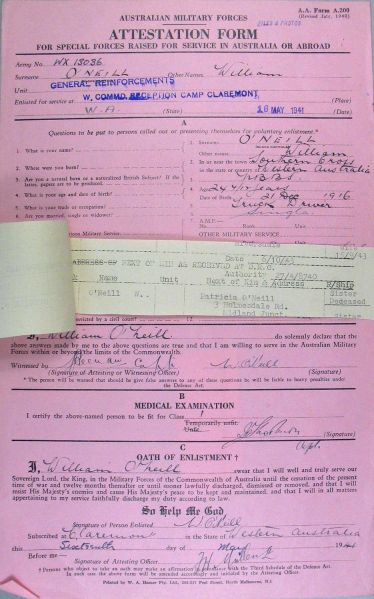 AUSTRALIAN MILITARY FORCES
A.A. Form A.200
(Revised July, 1940)
ATTESTATION FORM
FOR SPECIAL FORCES RAISED FOR SERVICE IN AUSTRALIA OR ABROAD
Army No. WX 13036
Surname O'NEILL Other Names William
Unit GENERAL REINFORCEMENTS
Enlisted for service at W. COMMD. RECEPTION CAMP CLAREMONT. (Place)
W.A. (State) 16 MAY 1941 (Date)
A
Questions to be put to persons called out or presenting themselves for voluntary enlistment.*
1. What is your name?
1. Surname O'NEILL
Other Names William
2. Where were you born?
2. In or near the town of Southern Cross
in the state or country of Western Australia
3. Are you a natural born or a naturalized British Subject? If the latter, papers are to be produced.
3. N.B.B.S.
4. What is your age and date of birth?
4. Age 24 4/12 years
Date of Birth 21 Dec 1916
5. What is your trade or occupation?
5. Truck Driver
6. Are you married, single or widower?
6. Single
A.M.F.
No. Rank Unit
OTHER MILITARY SERVICE
15/9/43
ADDRESS OF NEXT OF KIN AS RECEIVED AT
Date
Authority
Name Unit Next of Kin & Address R/Ship
O'Neill W. Patricia O'Neill Sister
Rd. Deceased
Midland Junct. Sister
convicted by a civil court?
I, William O'Neill do solemnly declare that the
above answers made by me to the above questions are true and that I am willing to serve in the Australian Military
Forces within or beyond the limits of the Commonwealth.
Witnessed by W O'Neill
(Signature of Attesting or Witnessing Officer) (Signature)
* The person will be warned that should he give false answers to any of these questions he will be liable to heavy penalties under
the Defence Act.
B
MEDICAL EXAMINATION
I certify the above-named person to be fit for Class 1
Temporarily unfit.
Unfit
(Signature)
C
OATH OF ENLISTMENT †
I, William O'Neill swear that I will well and truly serve our
Sovereign Lord, the King, in the Military Forces of the Commonwealth of Australia until the cessation of the present
time of war and twelve months thereafter or until sooner lawfully discharged, dismissed or removed, and that I will
resist His Majesty's enemies and cause His Majesty's peace to be kept and maintained, and that I will in all matters
appertaining to my service faithfully discharge my duty according to law.
So Help Me God
Signature of Person Enlisted W O'Neill
Subscribed at Claremont in the State of Western Australia
this Sixteenth day of May 1941
Before me—
(Signature of Attesting Officer)
† Persons who object to take an oath may make an affirmation in accordance with the Third Schedule of the Defence Act.
In such case the above form will be amended accordingly and initialed by the Attesting Officer.